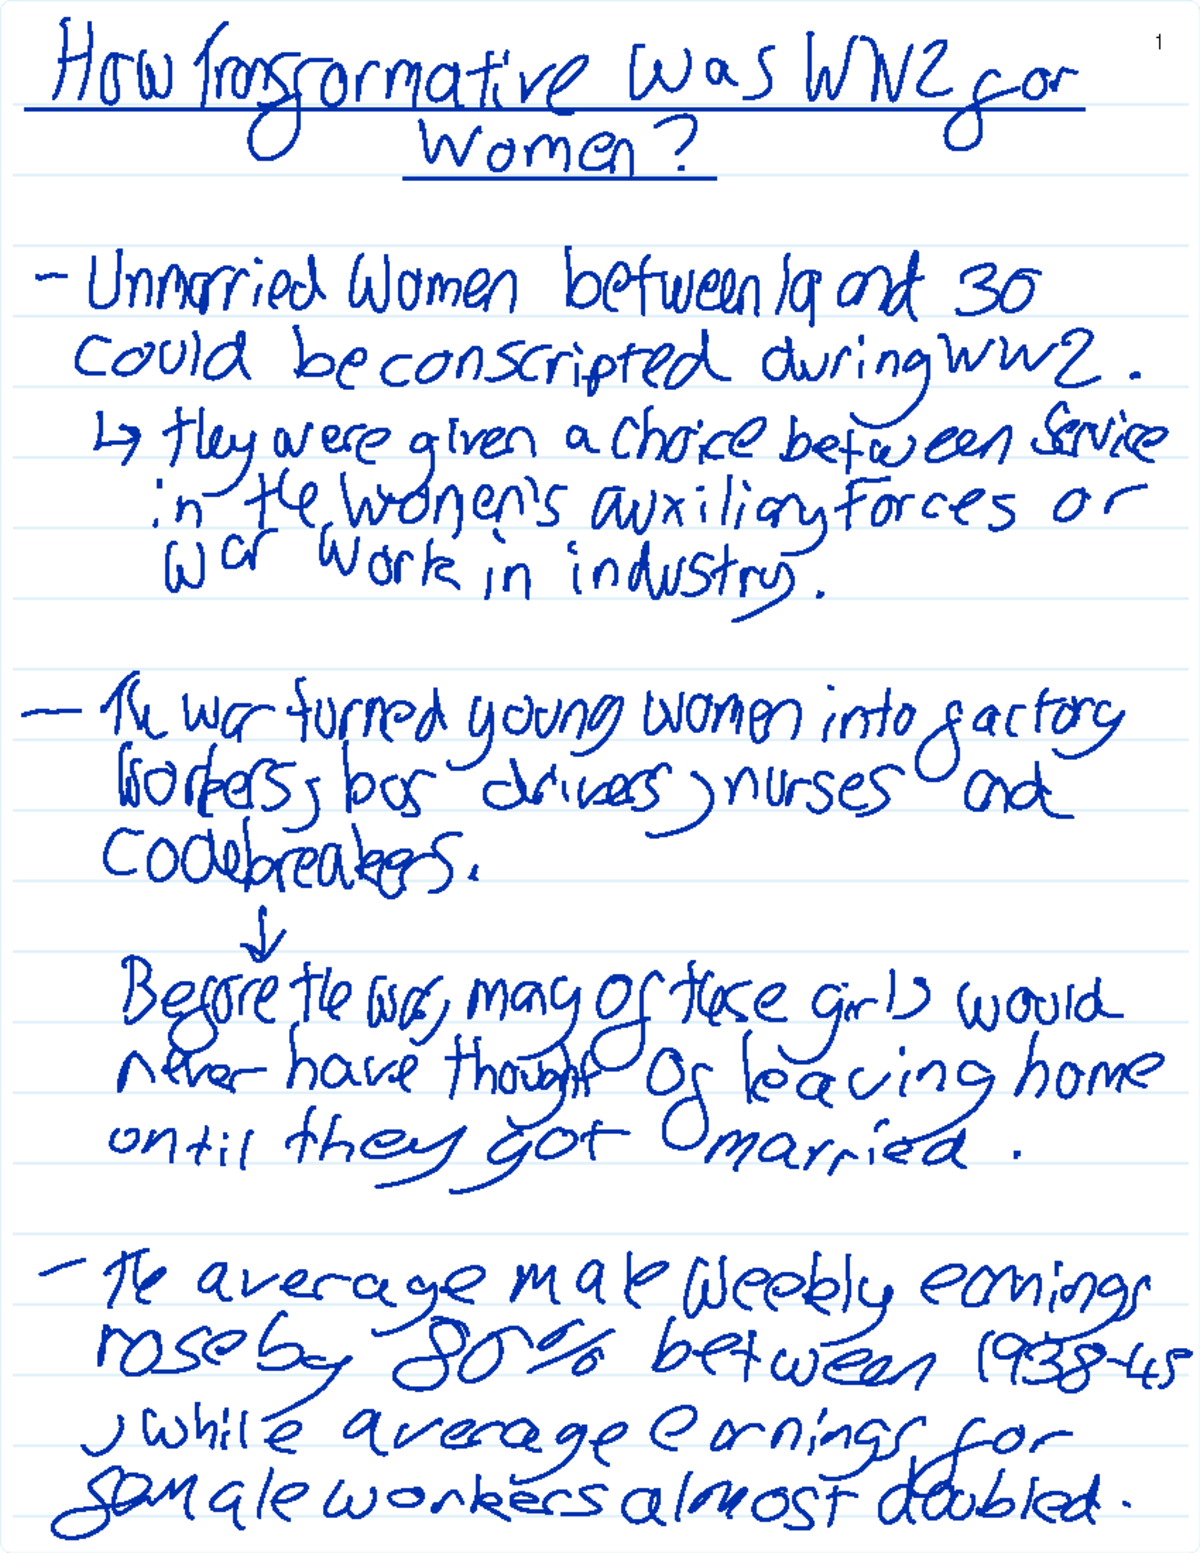 1
How Transformative was WW2 for
Women?
- Unmarried Women between 19 and 30
could be conscripted during WW2.
↳ they were given a choice between service
in the women's auxiliary forces or
war work in industry.
- The war turned young women into factory
workers, bus drivers, nurses and
codebreakers.
↓
Before the war, many of these girls would
never have thought of leaving home
until they got married.
- The average male weekly earnings
rose by 80% between 1938-45
, while average earnings for
female workers almost doubled.